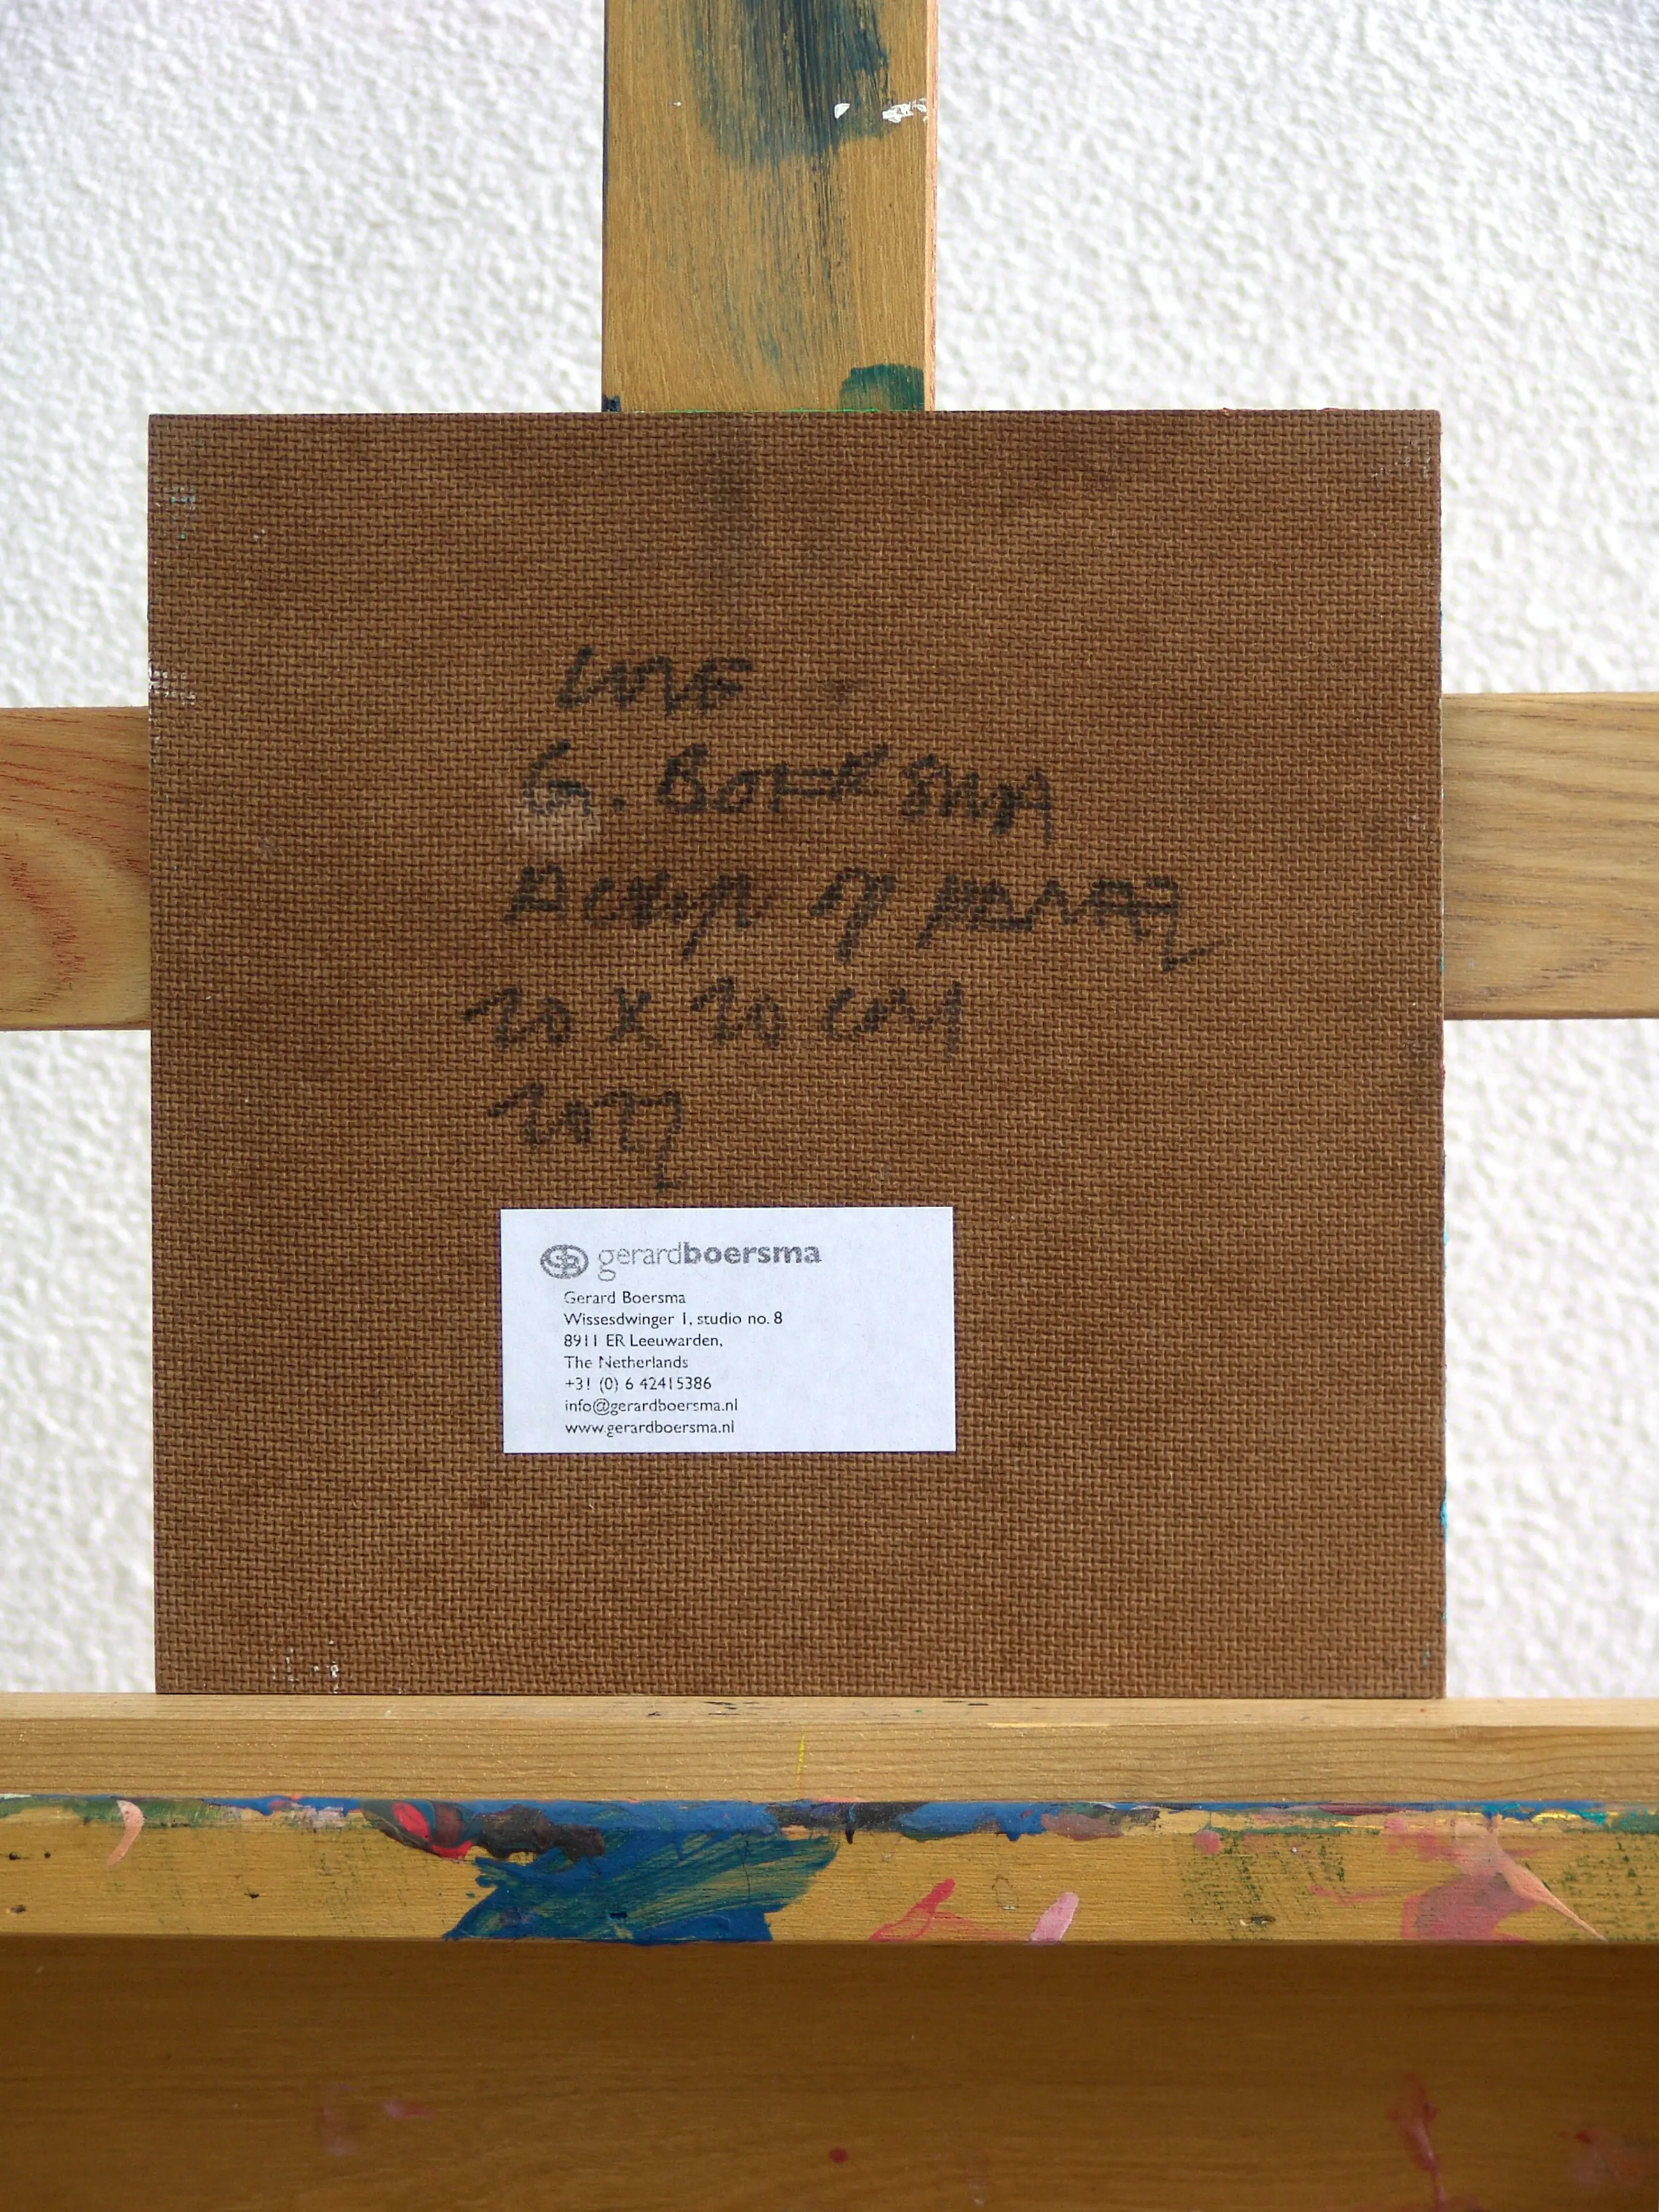 LOVE
G. BOERSMA
ACRYL OP PANEEL
20 X 20 CM
2022
gerardboersma
Gerard Boersma
Wissesdwinger 1, studio no. 8
8911 ER Leeuwarden,
The Netherlands
+31 (0) 6 42415386
info@gerardboersma.nl
www.gerardboersma.nl